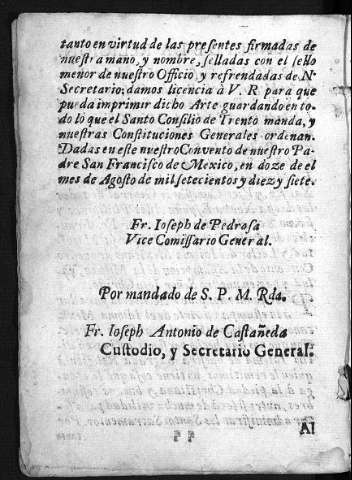 tanto en virtud de las presentes firmadas de
nuestra mano, y nombre, selladas con el sello
menor de nuestro Officio y refrendadas de N.
Secretario; damos licencia à V. R para que
pueda imprimir dicho Arte guardando en to-
do lo que el Santo Consilio de Trento manda, y
nuestras Constituciones Generales ordenan.
Dadas en este nuestro Convento de nuestro Pa-
dre San Francisco de Mexico, en doze de el
mes de Agosto de mil setecientos y diez y siete.
Fr. Ioseph de Pedrosa
Vice Comissario General.
Por mandado de S. P. M. Rda.
Fr. Ioseph Antonio de Castañeda
Custodio, y Secretario General.
¶ ¶
Al